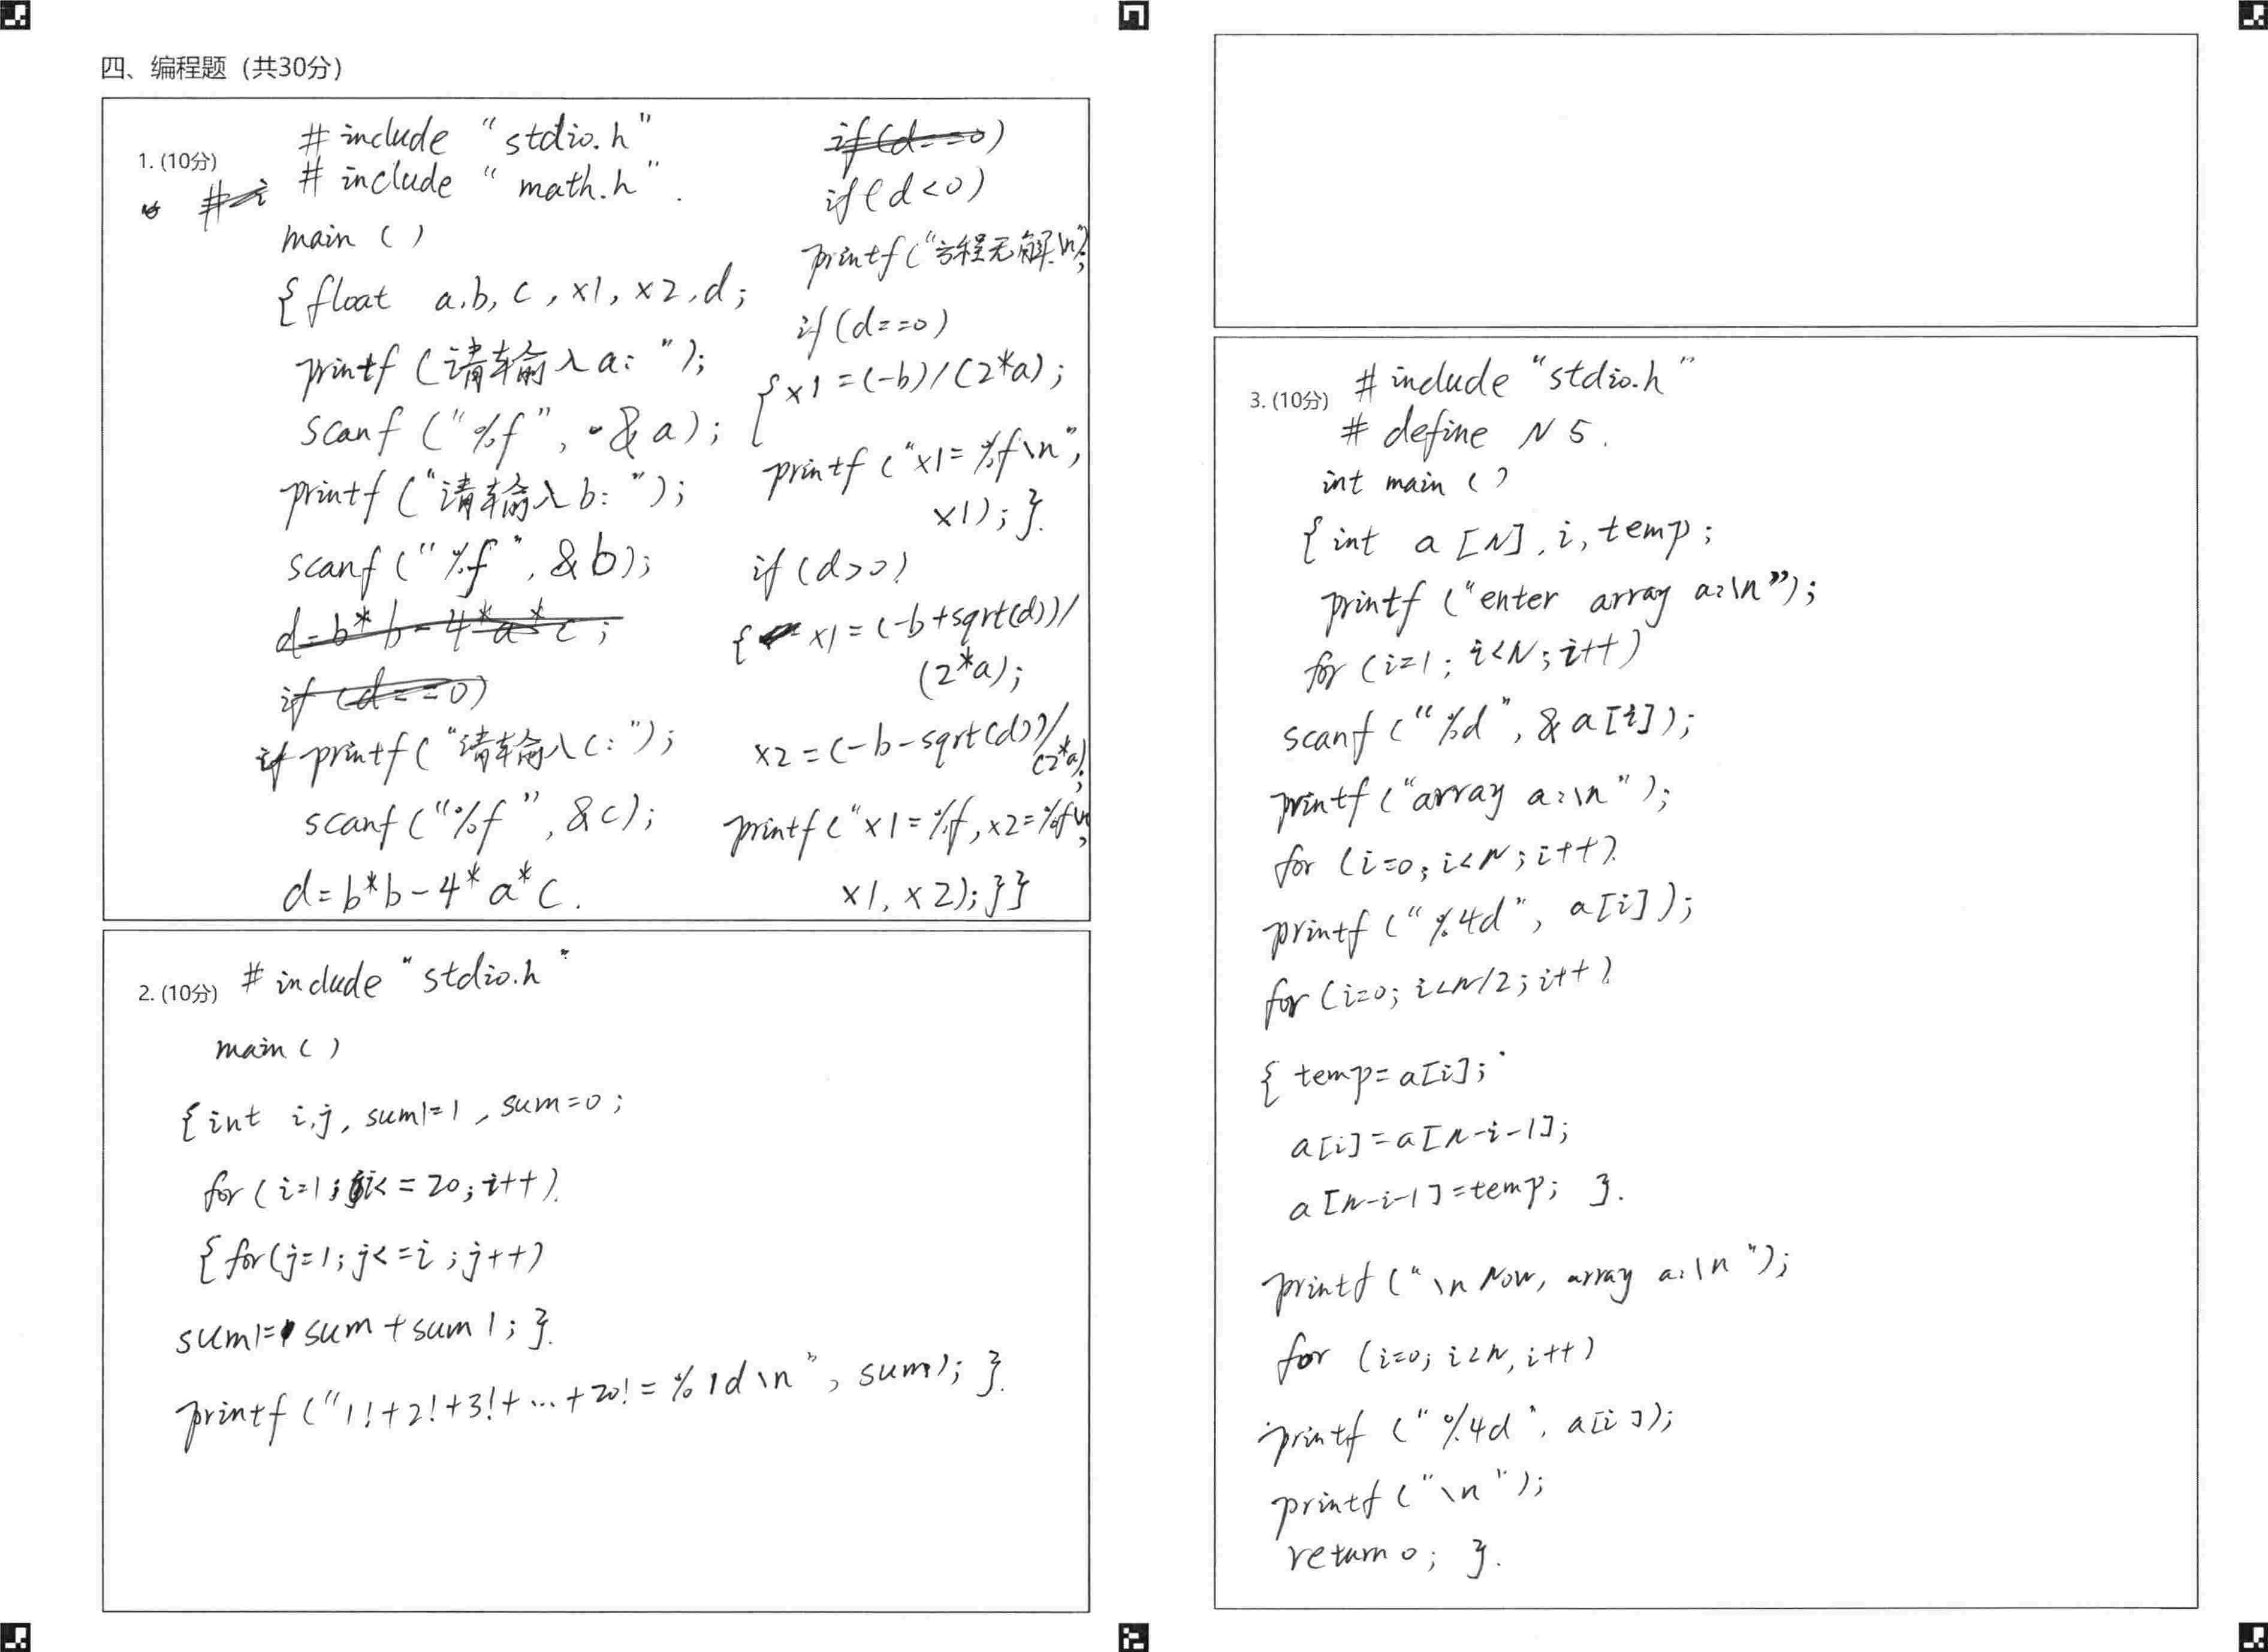 四、编程题（共30分）
1. (10分)
# include "stdio.h"
# include "math.h".
main ( )
{float a,b, c, x1, x2, d;
printf (请输入a: ");
scanf ("%f", &a);
printf ("请输入b: ");
scanf ("%f", &b);
d=b*b-4*a*c;
if (d==0)
printf ("请输入c: ");
scanf ("%f", &c);
d=b*b-4*a*c.
if(d==0)
if(d<0)
printf("方程无解\n");
if(d==0)
{x1=(-b)/(2*a);
printf("x1=%f\n",
x1);}.
if(d>0)
{x1=(-b+sqrt(d))/
(2*a);
x2=(-b-sqrt(d))/
(2*a);
printf("x1=%f,x2=%f\n
,
x1, x2);}}
2. (10分)
# include "stdio.h"
main( )
{int i,j, sum1=1, sum=0;
for(i=1;i<=20;i++).
{for(j=1;j<=i;j++)
sum1=sum+sum1;}.
printf("1!+2!+3!+...+20!=%1d\n", sum);}.
3. (10分)
# include "stdio.h"
# define N 5.
int main ( )
{int a [N], i, temp;
printf ("enter array a:\n");
for (i=1; i<N; i++)
scanf ("%d", &a[i]);
printf ("array a:\n");
for (i=0; i<N; i++).
printf ("%4d", a[i]);
for (i=0; i<N/2; i++)
{temp=a[i];
a[i]=a[N-i-1];
a[N-i-1]=temp; }.
printf ("\n Now, array a:\n");
for (i=0; i<N, i++)
printf ("%4d", a[i]);
printf ("\n");
return 0; }.